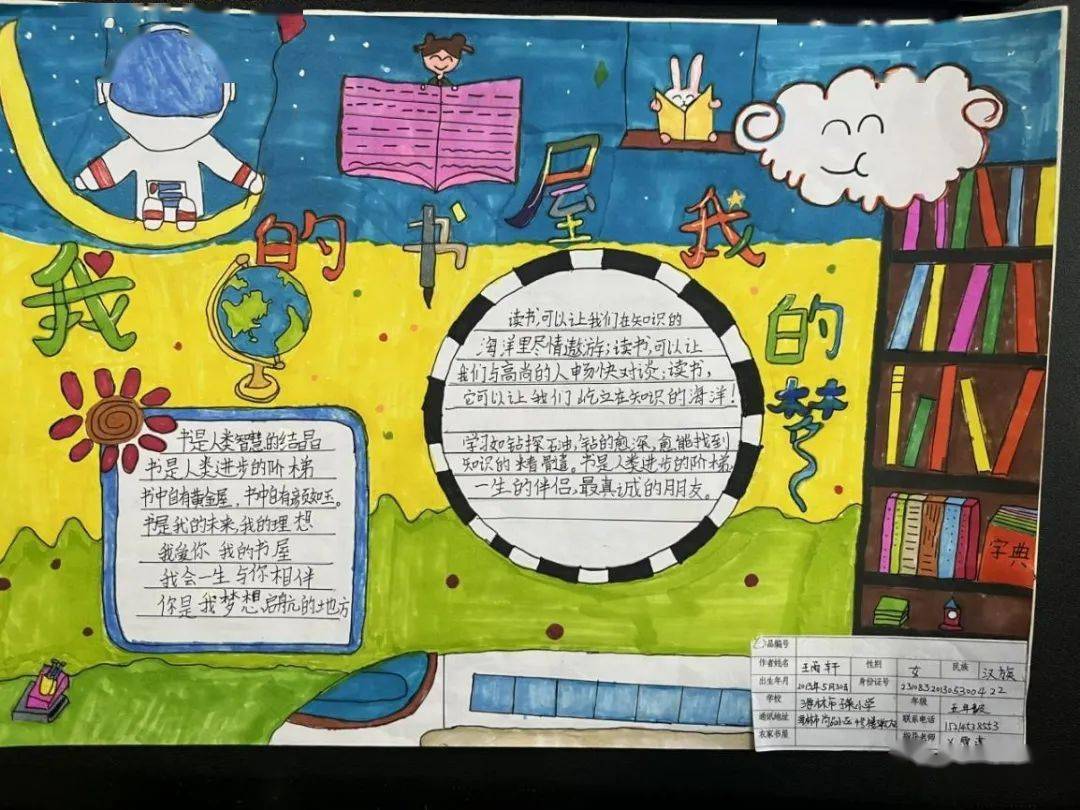 我的书屋我的梦
读书,可以让我们在知识的
海洋里尽情遨游;读书,可以让
我们与高尚的人畅快对谈;读书,
它可以让我们屹立在知识的海洋!
学习如钻探石油,钻的愈深,愈能找到
知识的精髓。书是人类进步的阶梯,
一生的伴侣,最真诚的朋友。
书是人类智慧的结晶
书是人类进步的阶梯
书中自有黄金屋,书中自有颜如玉。
书是我的未来,我的理想
我爱你 我的书屋
我会一生与你相伴
你是我梦想启航的地方
字典
品编号
作者姓名 性别 女 民族 汉族
出生年月 2013年5月30日 身份证号
学校 海林市子荣小学 年级 五年级
通讯地址 联系电话
农家书屋 指导老师